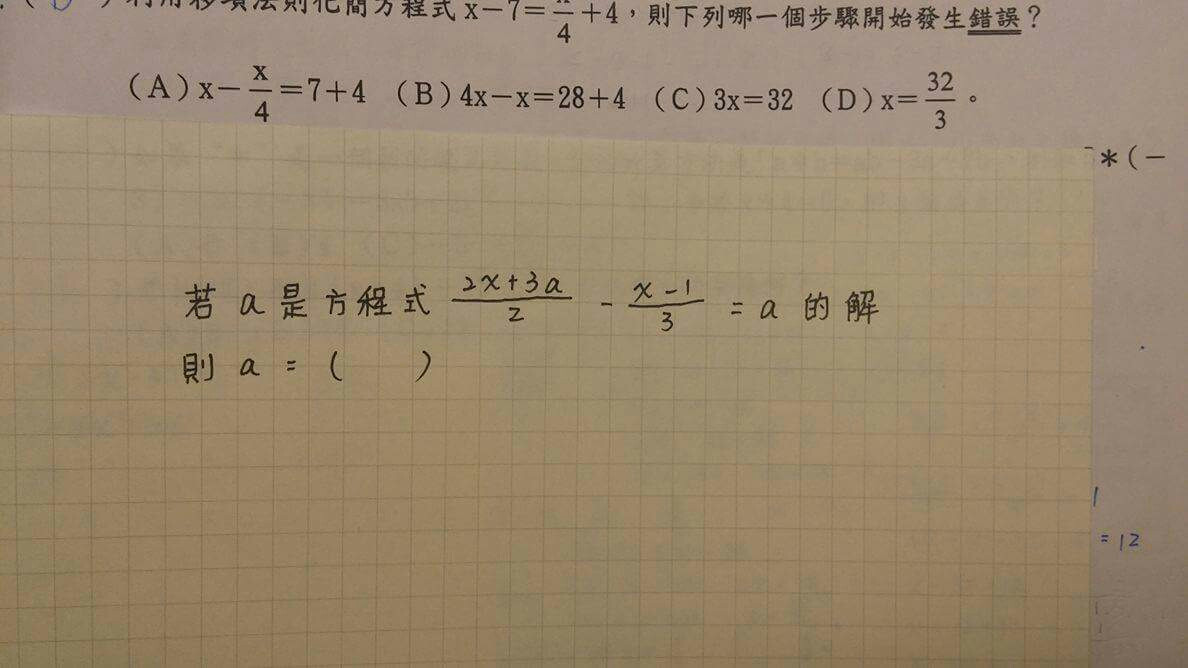 利用移項法則化簡方程式 x－7＝x/4＋4，則下列哪一個步驟開始發生錯誤？
(A) x－x/4＝7＋4 (B) 4x－x＝28＋4 (C) 3x＝32 (D) x＝32/3。
＊(－
若 a 是方程式 (2x+3a)/2 - (x-1)/3 = a 的解
則 a = ( )
= 12